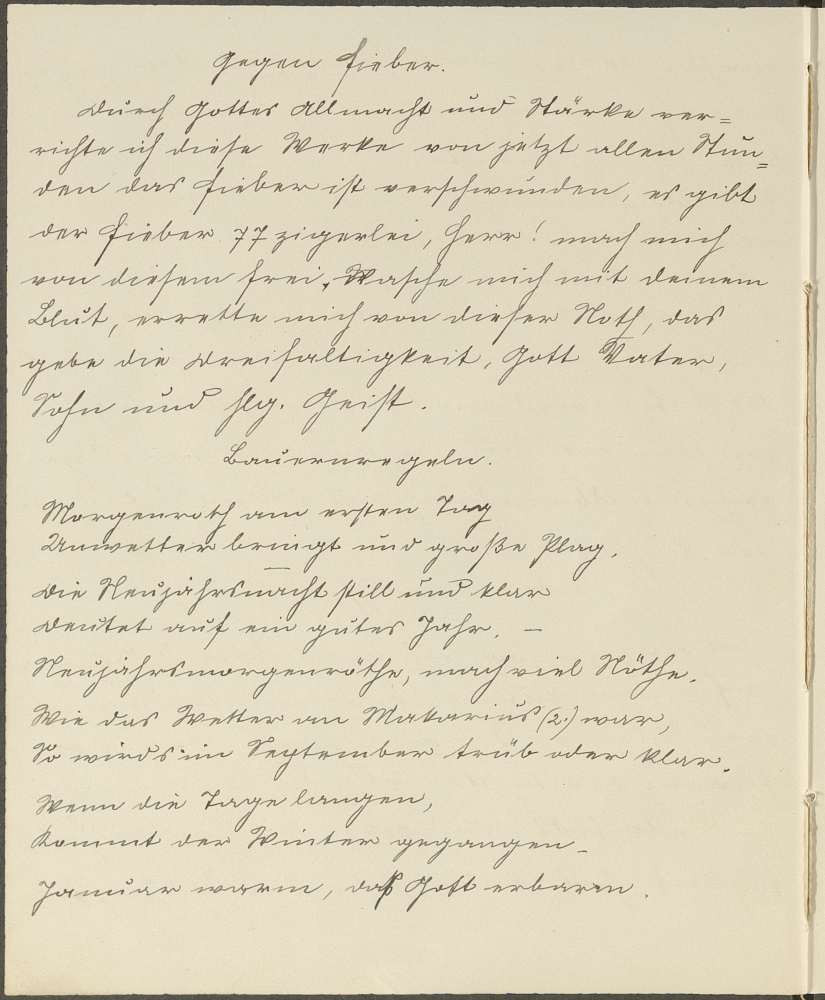 Gegen Fieber.
Durch Gottes Allmacht und Stärke ver=
richte ich diese Werke von jetzt allen Stun=
den das Fieber ist verschwunden, es gibt
der Fieber 77zigerlei, Herr! mach mich
von diesem frei. Wasche mich mit deinem
Blut, errette mich von dieser Noth, das
gebe die Dreifaltigkeit, Gott Vater,
Sohn und hlg. Geist.
Bauernregeln.
Morgenroth am ersten Tag
Unwetter bringt und große Plag.
Die Neujahrsnacht still und klar
Deutet auf ein gutes Jahr. –
Neujahrsmorgenröthe, mach viel Nöthe.
Wie das Wetter an Makarius (2.) war,
So wirds im September trüb oder klar.
Wenn die Tage langen,
Kommt der Winter gegangen_
Januar warm, daß Gott erbarm.